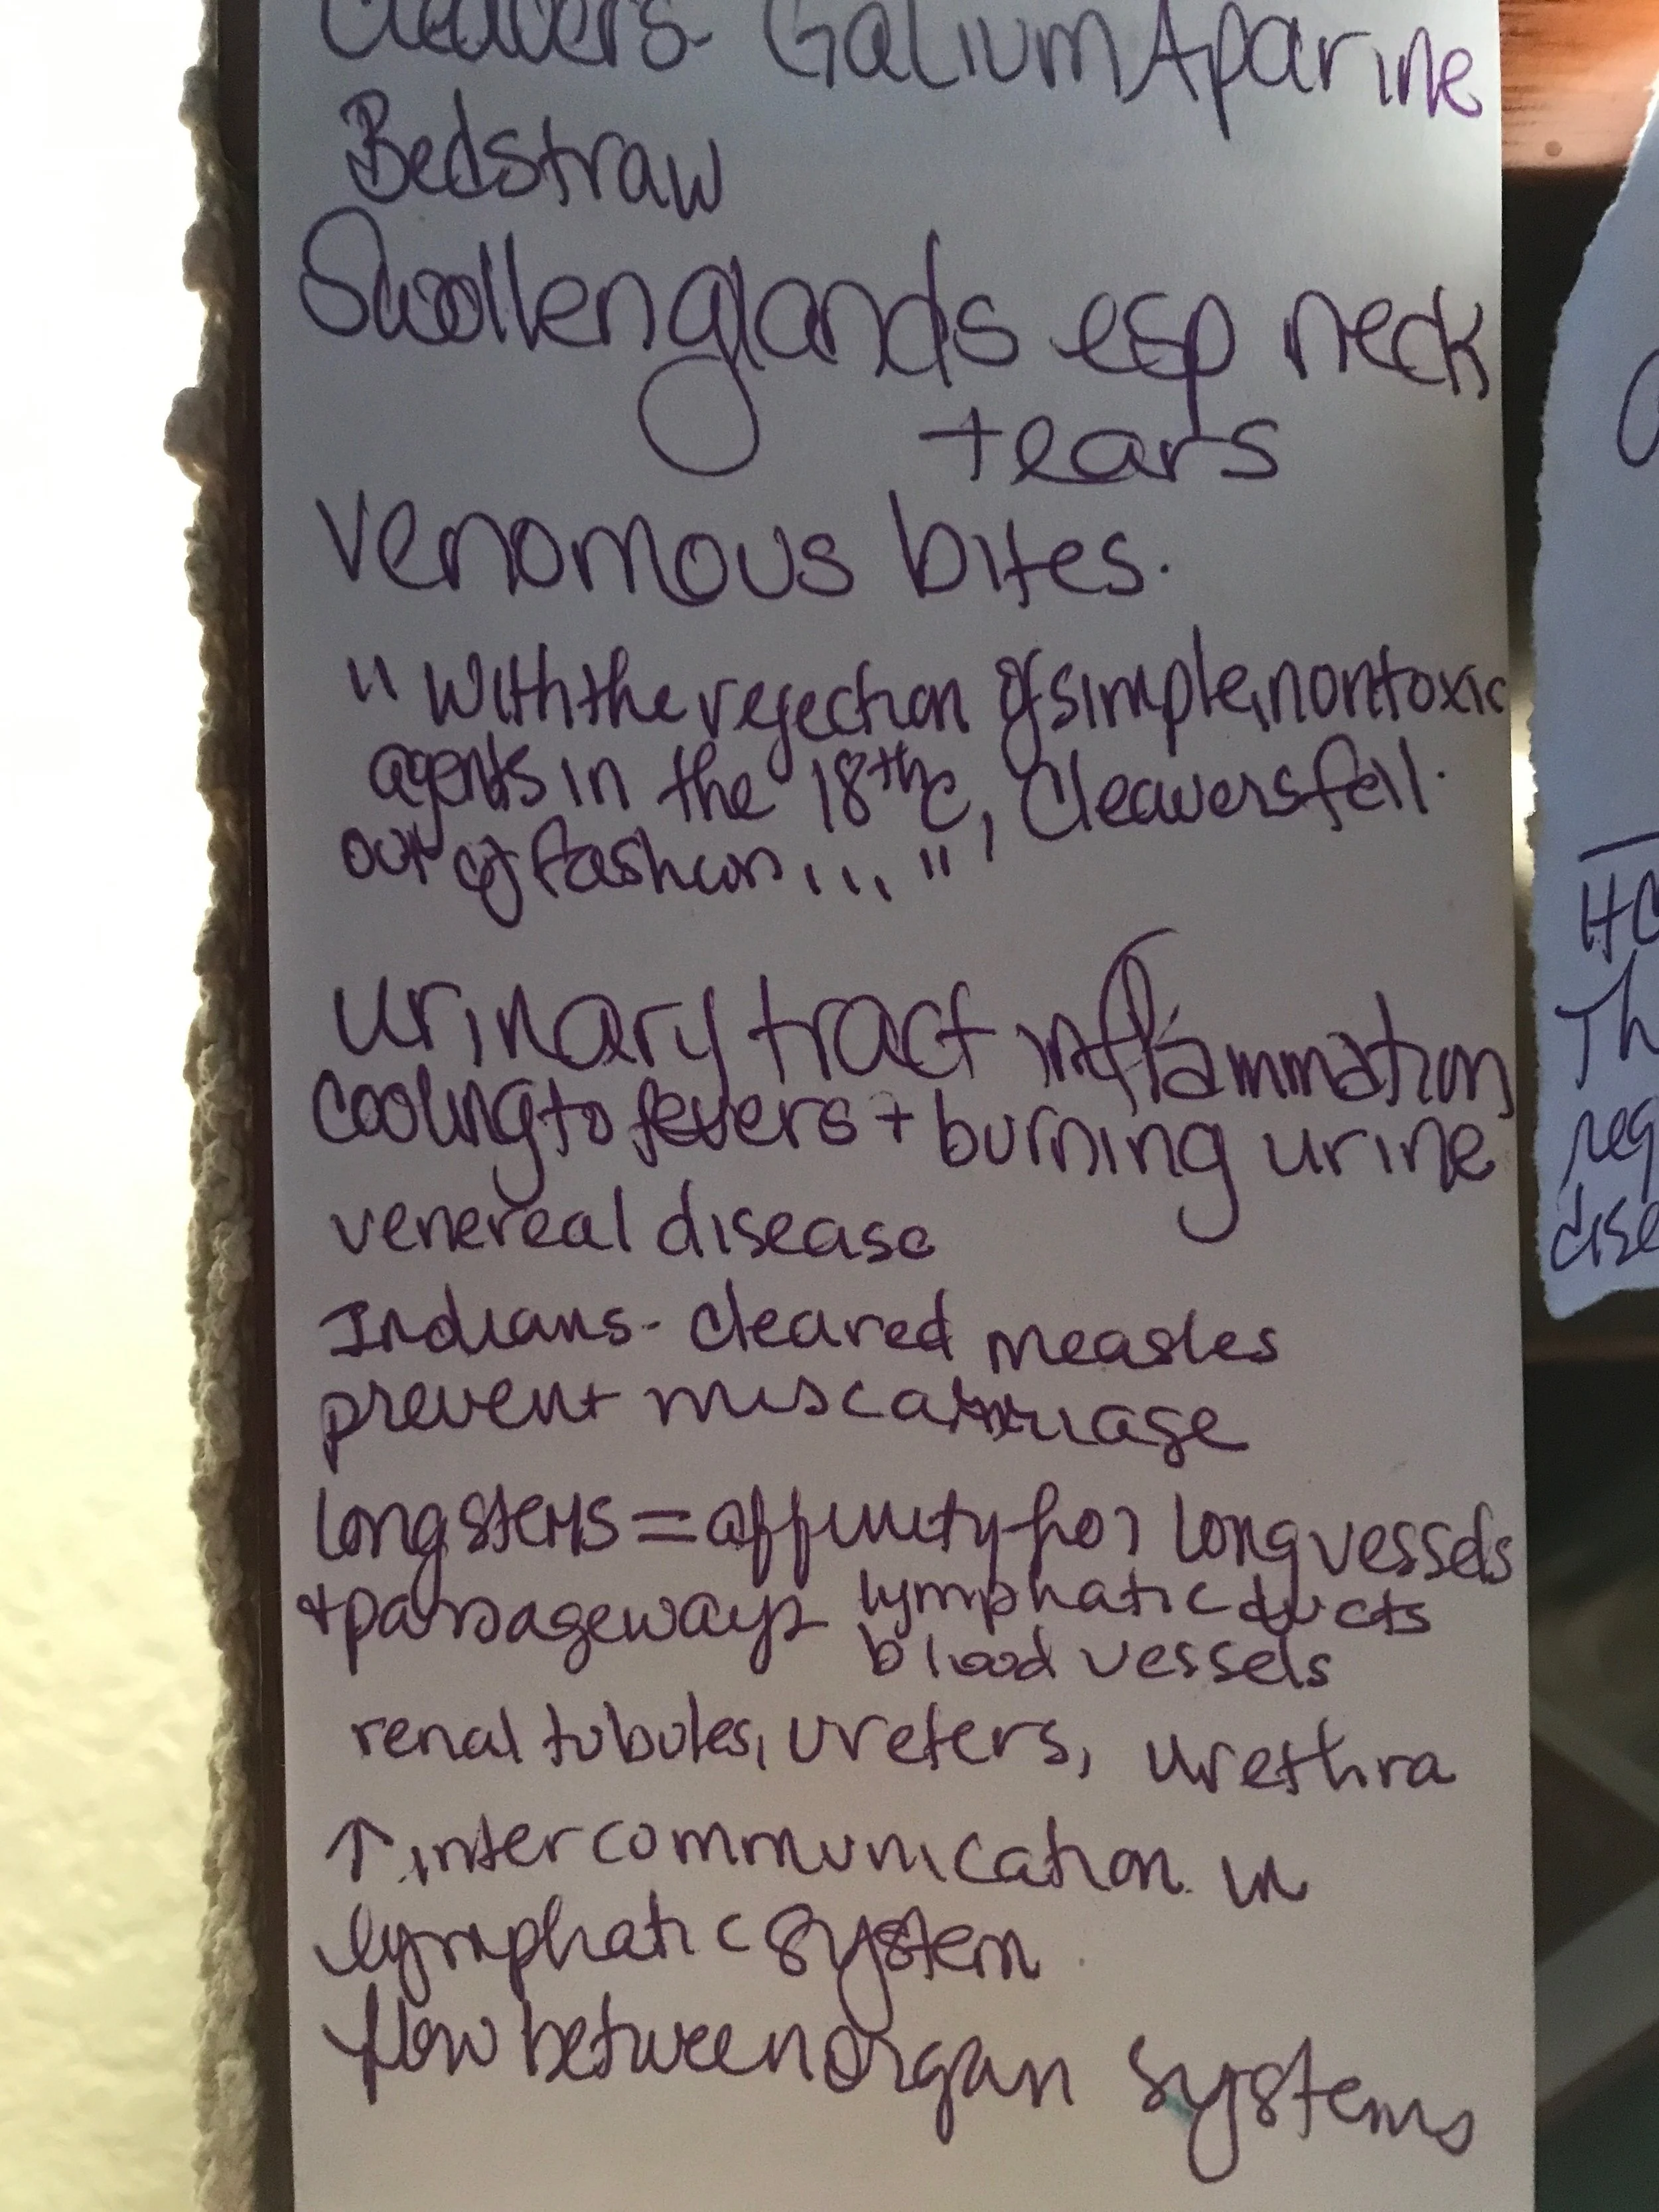 Cleavers- Galium Aparine
Bedstraw
Swollen glands esp neck
+ears
venomous bites.
"With the rejection of simple, nontoxic
agents in the 18th c, Cleavers fell
out of fashion..."
urinary tract inflammation
cooling to fevers + burning urine
venereal disease
Indians- cleared measles
prevent miscarriage
long stems = affinity for long vessels
+ passageways lymphatic ducts
blood vessels
renal tubules, ureters, urethra
↑ intercommunication in
lymphatic system
flow between organ systems
HC
Th
reg
dise